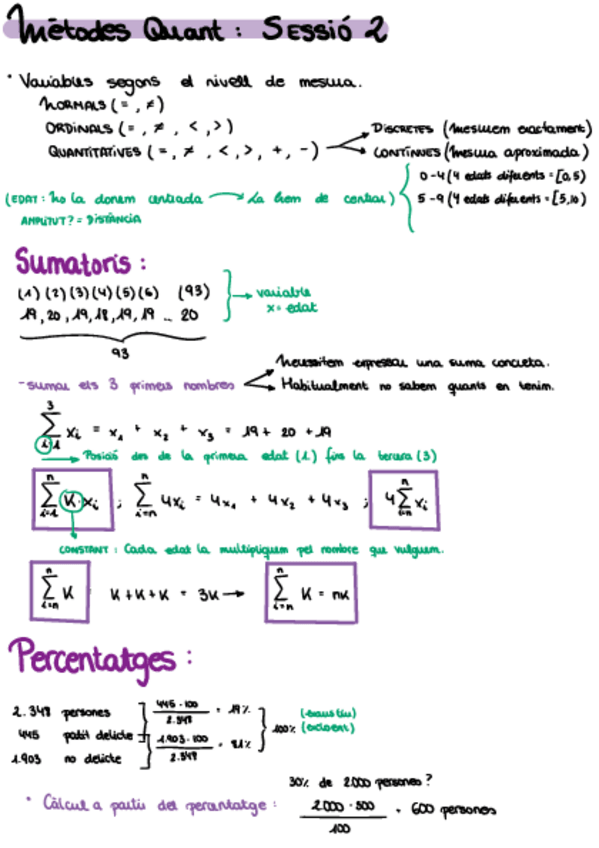 Mètodes Quant : Sessió 2
• Variables segons el nivell de mesura.
NORMALS (= , ≠)
ORDINALS (= , ≠ , < , >)
QUANTITATIVES (= , ≠ , < , > , + , -)
DISCRETES (mesurem exactament)
CONTÍNUES (mesura aproximada)
0-4 (4 edats diferents = [0,5)
5-9 (4 edats diferents = [5,10)
(EDAT : no la donem centrada → La hem de centrar)
AMPLITUT? = DISTÀNCIA
Sumatoris :
(1) (2) (3) (4) (5) (6) (93)
19, 20, 19, 18, 19, 19 ... 20
→ variable
x = edat
93
- sumar els 3 primers nombres
Necessitem expressar una suma concreta.
Habitualment no sabem quants en tenim.
3 ∑ i=1 xi = x1 + x2 + x3 = 19 + 20 + 19
Posició des de la primera edat (1) fins la tercera (3)
n ∑ i=1 K·xi ; n ∑ i=n 4xi = 4x1 + 4x2 + 4x3 ; 4 n ∑ i=n xi
CONSTANT : Cada edat la multipliquem pel nombre que vulguem.
n ∑ i=n K K+K+K = 3K → n ∑ i=n K = nK
Percentatges :
2.348 persones
445 patit delicte
1.903 no delicte
445 · 100 / 2.348 = 19%
1.903 · 100 / 2.348 = 81%
100% (exhaustiu) (excloent)
30% de 2000 persones?
• Càlcul a partir del percentatge : 2000 · 300 / 100 = 600 persones